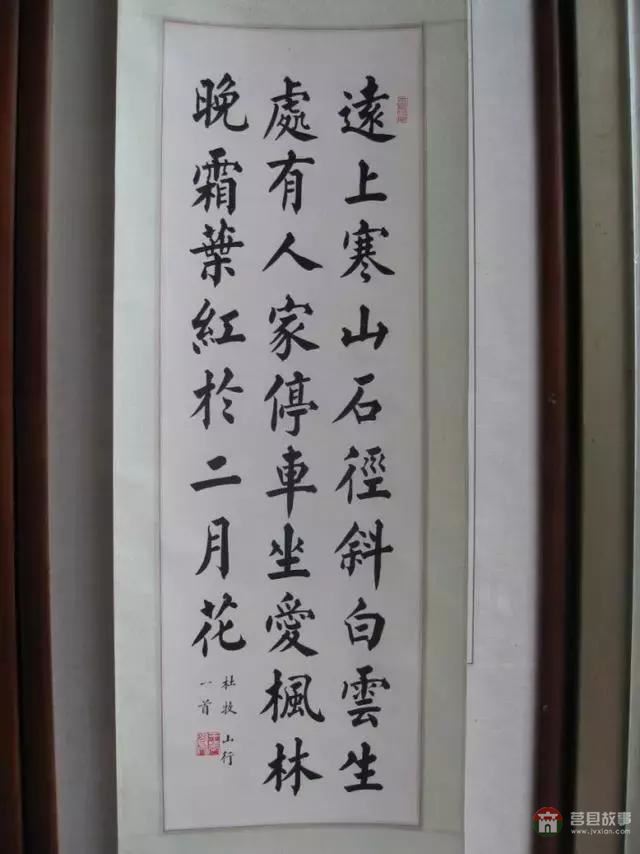 遠上寒山石徑斜白雲生
處有人家停車坐愛楓林
晚霜葉紅於二月花
杜牧山行
一首
莒县故事
www.jvxian.com